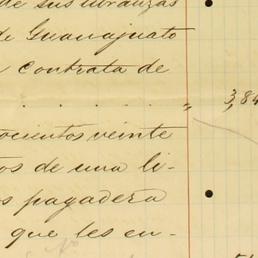 de sus libranzas
de Guanajuato
contrata de
. . . . . „ 3,84
ocientos veinte
tos de una li-
s pagadera
que les en-